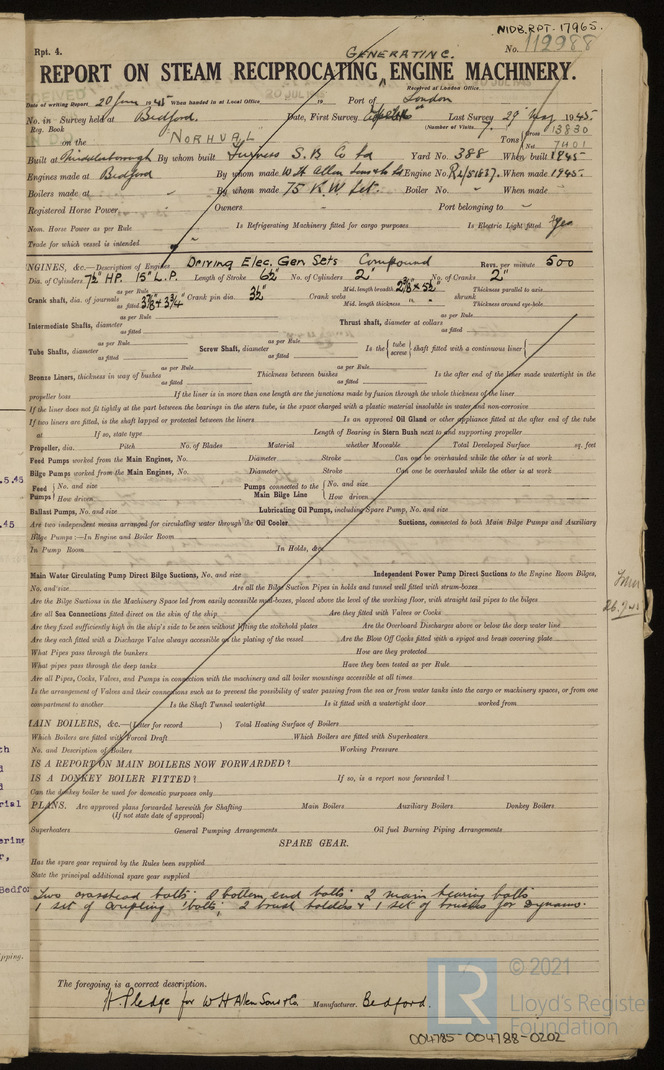 MIDB.RPT. 17965.
Rpt. 4. GENERATING. No. 112988
REPORT ON STEAM RECIPROCATING ENGINE MACHINERY.
Received at London Office
Date of writing Report 20 June 1945 When handed in at Local Office 19 Port of London
No. in Survey held at Bedford. Date, First Survey Last Survey 29 May 1945.
Reg. Book (Number of Visits 7.
on the NORHVAL Tons Gross 13830 Net 7401
Built at Middlesborough By whom built Furness S. B Co Ltd Yard No. 388 When built 1945
Engines made at Bedford By whom made W H Allen Sons & Co Engine No. When made 1945.
Boilers made at By whom made 75 K.W Set. Boiler No. " When made
Registered Horse Power Owners Port belonging to
Nom. Horse Power as per Rule Is Refrigerating Machinery fitted for cargo purposes Is Electric Light fitted Yes
Trade for which vessel is intended
ENGINES, &c.—Description of Engines Driving Elec. Gen Sets Compound Revs. per minute 500
Dia. of Cylinders 7½" HP. 15" L.P. Length of Stroke 6½" No. of Cylinders 2" No. of Cranks 2"
Crank shaft, dia. of journals as per Rule as fitted Crank pin dia. 3½" Crank webs Mid. length breadth Mid. length thickness " shrunk Thickness parallel to axis Thickness around eye-hole
Intermediate Shafts, diameter as per Rule as fitted Thrust shaft, diameter at collars as per Rule as fitted
Tube Shafts, diameter as per Rule as fitted Screw Shaft, diameter as per Rule as fitted Is the { tube screw } shaft fitted with a continuous liner {
Bronze Liners, thickness in way of bushes as per Rule as fitted Thickness between bushes as per Rule as fitted Is the after end of the liner made watertight in the
propeller boss If the liner is in more than one length are the junctions made by fusion through the whole thickness of the liner
If the liner does not fit tightly at the part between the bearings in the stern tube, is the space charged with a plastic material insoluble in water and non-corrosive
If two liners are fitted, is the shaft lapped or protected between the liners Is an approved Oil Gland or other appliance fitted at the after end of the tube
at If so, state type Length of Bearing in Stern Bush next to and supporting propeller
Propeller, dia. Pitch No. of Blades Material whether Moveable Total Developed Surface sq. feet
Feed Pumps worked from the Main Engines, No. Diameter Stroke Can one be overhauled while the other is at work
Bilge Pumps worked from the Main Engines, No. Diameter Stroke Can one be overhauled while the other is at work
Feed Pumps { No. and size How driven Pumps connected to the Main Bilge Line { No. and size How driven
Ballast Pumps, No. and size Lubricating Oil Pumps, including Spare Pump, No. and size
Are two independent means arranged for circulating water through the Oil Cooler Suctions, connected to both Main Bilge Pumps and Auxiliary
Bilge Pumps :—In Engine and Boiler Room
In Pump Room In Holds, &c.
Main Water Circulating Pump Direct Bilge Suctions, No. and size Independent Power Pump Direct Suctions to the Engine Room Bilges,
No. and size Are all the Bilge Suction Pipes in holds and tunnel well fitted with strum-boxes
Are the Bilge Suctions in the Machinery Space led from easily accessible mud-boxes, placed above the level of the working floor, with straight tail pipes to the bilges
Are all Sea Connections fitted direct on the skin of the ship Are they fitted with Valves or Cocks
Are they fixed sufficiently high on the ship's side to be seen without lifting the stokehold plates Are the Overboard Discharges above or below the deep water line
Are they each fitted with a Discharge Valve always accessible on the plating of the vessel Are the Blow Off Cocks fitted with a spigot and brass covering plate
What Pipes pass through the bunkers How are they protected
What pipes pass through the deep tanks Have they been tested as per Rule
Are all Pipes, Cocks, Valves, and Pumps in connection with the machinery and all boiler mountings accessible at all times
Is the arrangement of Valves and their connections such as to prevent the possibility of water passing from the sea or from water tanks into the cargo or machinery spaces, or from one
compartment to another Is the Shaft Tunnel watertight Is it fitted with a watertight door worked from
MAIN BOILERS, &c.—(Letter for record ) Total Heating Surface of Boilers
Which Boilers are fitted with Forced Draft Which Boilers are fitted with Superheaters
No. and Description of Boilers Working Pressure
IS A REPORT ON MAIN BOILERS NOW FORWARDED?
IS A DONKEY BOILER FITTED? If so, is a report now forwarded?
Can the donkey boiler be used for domestic purposes only
PLANS. Are approved plans forwarded herewith for Shafting Main Boilers Auxiliary Boilers Donkey Boilers
(If not state date of approval)
Superheaters General Pumping Arrangements Oil fuel Burning Piping Arrangements
SPARE GEAR.
Has the spare gear required by the Rules been supplied
State the principal additional spare gear supplied
Two crosshead bolts. 2 bottom end bolts 2 main bearing bolts
1 set of coupling bolts, 2 brush holders & 1 set of brushes for Dynamo.
The foregoing is a correct description.
H. Pledge for W H Allen Sons & Co. Manufacturer. Bedford.
© 2021
Lloyd's Register
Foundation
004785-004788-0202